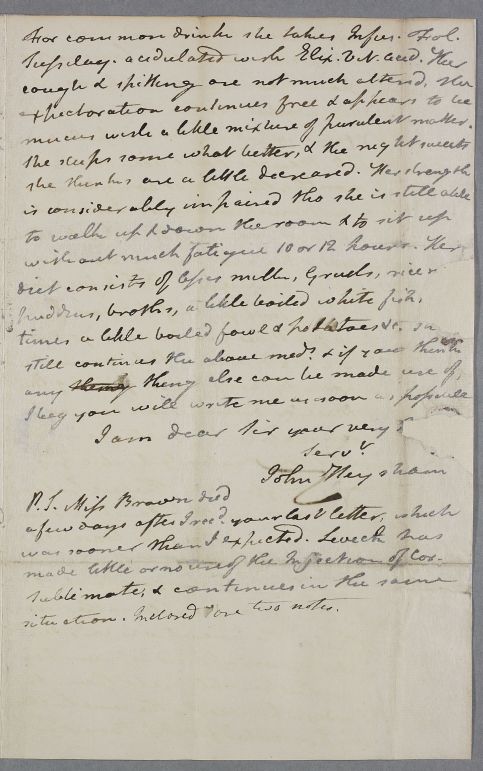 For common drink she takes Infus. Fol.
Tussilag. acidulated with Elix. V. N. acid. Her
cough & spitting are not much altered, the
expectoration continues free & appears to be
mucus with a little mixture of purulent matter.
She sleeps some what better, & the night sweats
she thinks are a little decreased. Her strength
is considerably impaired tho she is still able
to walk up & down the room & to sit up
without much fatigue 10 or 12 hours. Her
diet consists of asses milk, gruels, rice
puddens, broths, a little boiled white fish,
times a little boiled fowl & potatoes &c.
still continues the above meds. & if you think
any thing else can be made use of,
I beg you will write me as soon as possible
I am dear Sir your very
Servt.
John Heysham
P.S. Miss Brown died
a few days after I recd. your last letter, which
was sooner than I expected. Leveck has
made little or no use of the Injection of Cor.
Sublimate, & continues in the same
situation. Inclosed are two notes.